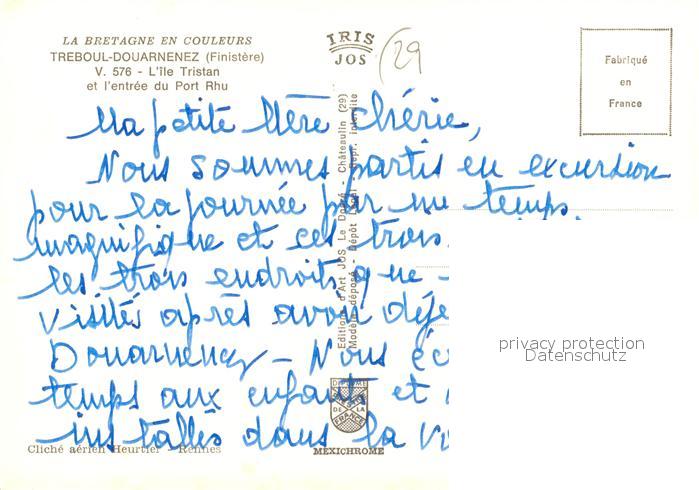 LA BRETAGNE EN COULEURS
TREBOUL-DOUARNENEZ (Finistère)
V. 576 - L'Ile Tristan
et l'entrée du Port Rhu
IRIS
JOS
(29
Fabriqué
en
France
Ma petite Mère chérie,
Nous sommes partis en excursion
pour la journée par un temps
magnifique et ces trois
les trois endroits que
visités après avoir déje
Douarnenez - Nous éc
temps aux enfants et
installés dans la v
Edition d'Art JOS Le Doaré - Châteaulin (29)
Modèle déposé - Dépôt Légal - Repr. interdite
DE LA
FRANCE
Cliché aérien Heurtier - Rennes
MEXICHROME
privacy protection
Datenschutz